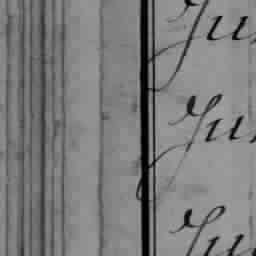 Ju
Ju
Ju